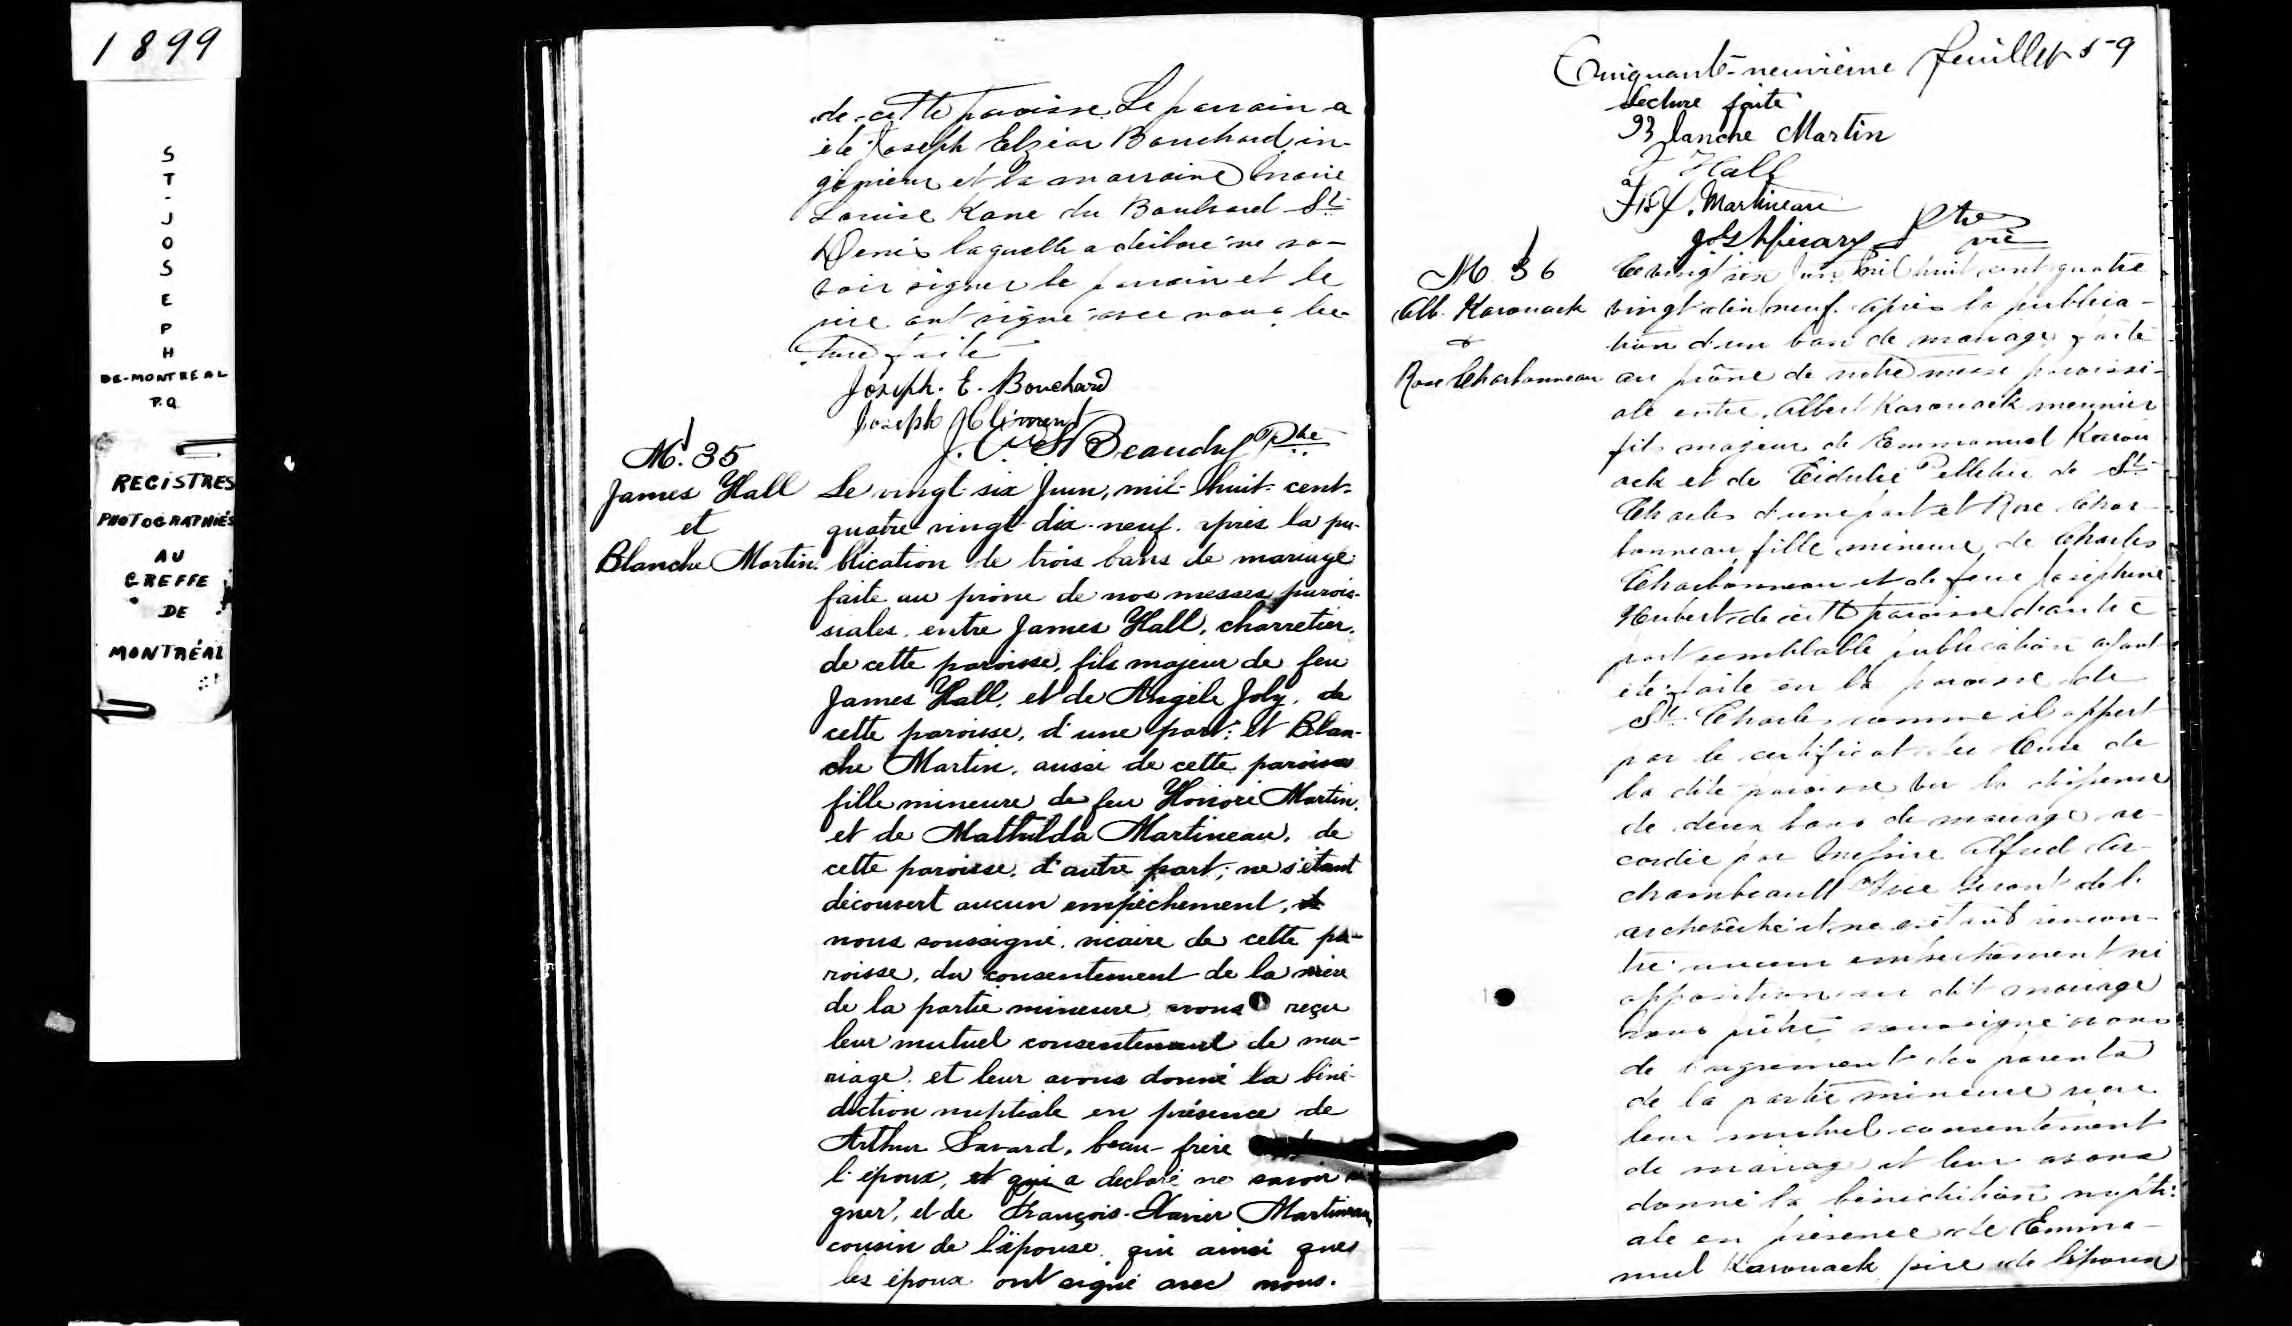 1899
ST-JOSEPH
DE-MONTREAL
P.Q.
REGISTRES
PHOTOGRAPHIÉS
AU
GREFFE
DE
MONTRÉAL
de cette paroisse. Le parrain a
été Joseph Elzéar Bouchard, in-
génieur et la marraine Marie
Louise Kane du Boulvard St
Denis laquelle a déclaré ne sa-
voir signer le parrain et le
père ont signé avec nous. lec-
ture faite
Joseph. E. Bouchard
Joseph Clément
Beaudry Ptre
M. 35
James Hall
et
Blanche Martin.
Le vingt-six Juin, mil-huit-cent-
quatre vingt dix-neuf. après la pu-
blication de trois bans de mariage
faite au prône de nos messes parois-
siales, entre James Hall, charretier,
de cette paroisse, fils majeur de feu
James Hall, et de Angèle Joly, de
cette paroisse, d'une part; et Blan-
che Martin, aussi de cette paroisse
fille mineure de feu Honoré Martin,
et de Mathilda Martineau, de
cette paroisse, d'autre part; ne s'étant
découvert aucun empêchement,
nous soussigné, vicaire de cette pa-
roisse, du consentement de la mère
de la partie mineure avons reçu
leur mutuel consentement de ma-
riage, et leur avons donné la béné-
diction nuptiale en présence de
Arthur Savard, beau-frère
l'époux, et qui a déclaré ne savoir si
gner, et de François-Xavier Martineau
cousin de l'épouse, qui ainsi que
les époux ont signé avec nous.
Cinquante-neuvième feuillet 59
Lecture faite
Blanche Martin
J Hall
F. X. Martineau
Ptre
vic
M 36
Alb. Karouack
&
Rose Charbonneau
Le vingt six Juin mil huit cent quatre
vingt dix neuf. après la publica-
tion d'un ban de mariage faite
au prône de notre messe paroissi-
ale entre Albert Karouack meunier
fils majeur de Emmanuel Karou
ack et de Pelletier de St
Charles d'une part et Rose Char-
bonneau fille mineure de Charles
Charbonneau et de feue Josephine
Hubert de cette paroisse d'autre
part semblable publication ayant
été faite en la paroisse de
St Charles comme il appert
par le certificat du Curé de
la dite paroisse vu la dispense
de deux bans de mariage ac-
cordée par Messire Alfred Ar-
chambeault Vice Gérant de l'
archevêché et ne s'étant rencon-
tré aucun empêchement ni
opposition au dit mariage
nous prêtre soussigné avons
de l'agrément des parents
de la partie mineure reçu
leur mutuel consentement
de mariage et leur avons
donné la bénédiction nupti-
ale en présence de Emma-
nuel Karouack père de l'époux